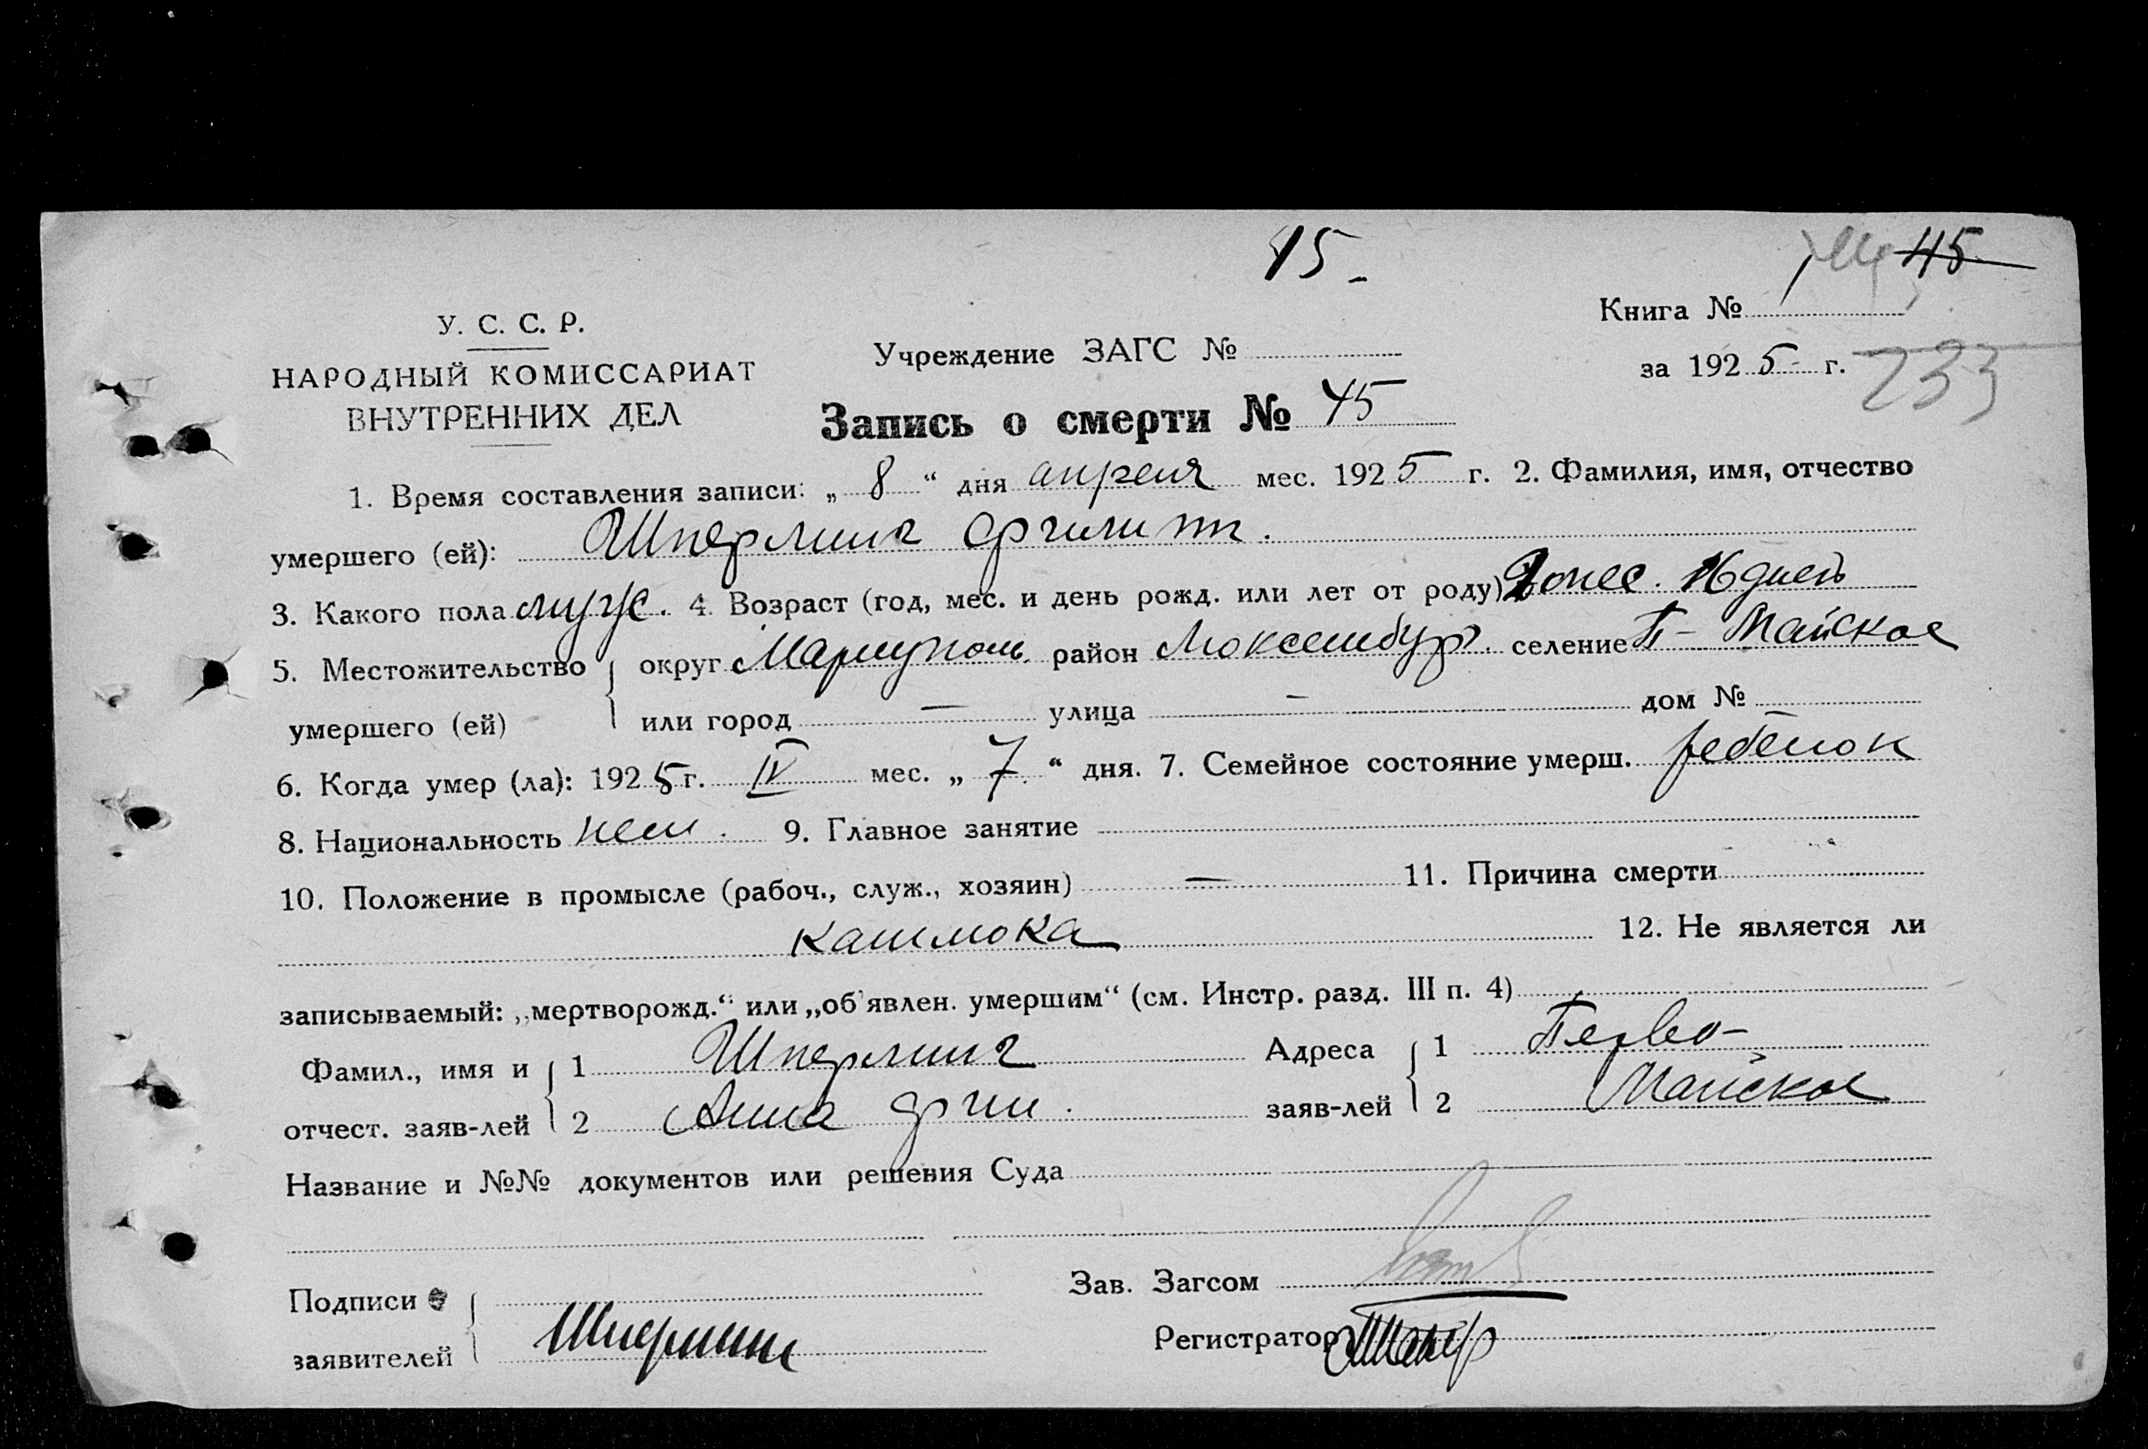 45.
45
У. С. С. Р.
Книга №
НАРОДНЫЙ КОМИССАРИАТ
Учреждение ЗАГС №
за 1925 г. 233
ВНУТРЕННИХ ДЕЛ
Запись о смерти № 45
1. Время составления записи: „ 8 “ дня апреля мес. 1925 г. 2. Фамилия, имя, отчество
умершего (ей): Шперлинг Филипп.
3. Какого пола муж. 4. Возраст (год, мес. и день рожд. или лет от роду) мес. 16 дней
5. Местожительство округ Мариуполь. район Люксембург. селение П-Майское
умершего (ей) или город — улица — дом №
6. Когда умер (ла): 1925 г. IV мес. „ 7 “ дня. 7. Семейное состояние умерш. ребенок
8. Национальность нем. 9. Главное занятие
10. Положение в промысле (рабоч., служ., хозяин) — 11. Причина смерти
кашлюка 12. Не является ли
записываемый: „мертворожд.“ или „об'явлен. умершим“ (см. Инстр. разд. III п. 4)
Фамил., имя и 1 Шперлинг Адреса 1 Перво-
отчест. заяв-лей 2 Анна Фил. заяв-лей 2 Майское
Название и №№ документов или решения Суда
Подписи Зав. Загсом
заявителей Шперлинг Регистратор